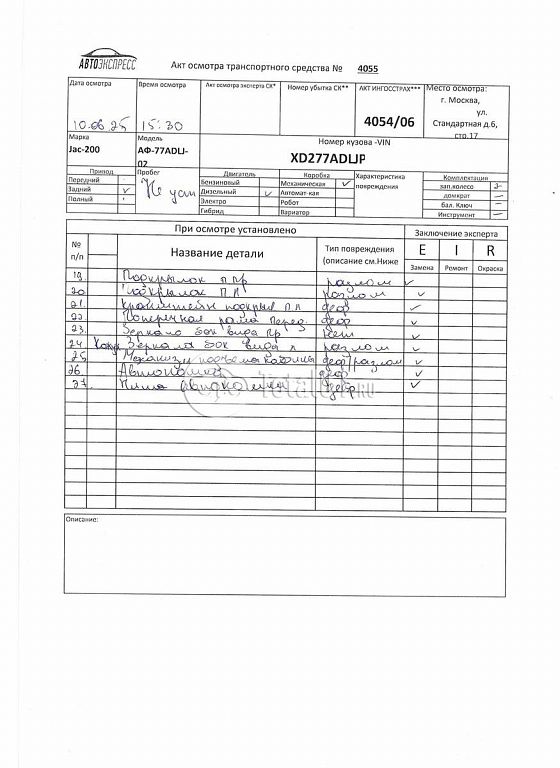 АВТОЭКСПРЕСС
Акт осмотра транспортного средства № 4055
Дата осмотра
Время осмотра
Акт осмотра эксперта СК*
Номер убытка СК**
АКТ ИНГОССТРАХ***
Место осмотра:
г. Москва,
ул.
Стандартная д.6,
стр.17
10.06.25
15:30
4054/06
Марка
Модель
Номер кузова -VIN
Jac-200
АФ-77ADLJ-
02
XD277ADLJP
Привод
Пробег
Двигатель
Коробка
Характеристика
повреждения
Комплектация
Передний
Бензиновый
Механическая ✓
зап.колесо
Задний ✓
Дизельный ✓
Автомат-кая
домкрат
Полный
Электро
Робот
бал. Ключ
Гибрид
Вариатор
Инструмент
Не уст
При осмотре установлено
Заключение эксперта
№
п/п
Название детали
Тип повреждения
(описание см.Ниже
E I R
Замена Ремонт Окраска
19. Подкрылок п пр разлом ✓
20 Подкрылок п л разлом ✓
21. Кронштейн подкрыл п л деф ✓
22 Поперечная рама перед. деф ✓
23. Зеркало бок вида пр ✓
24 Зеркала бок вида л разлом ✓
25 Механизм подъема кабины деф/разлом ✓
26. деф ✓
27. деф ✓
Total01.RU
Описание: